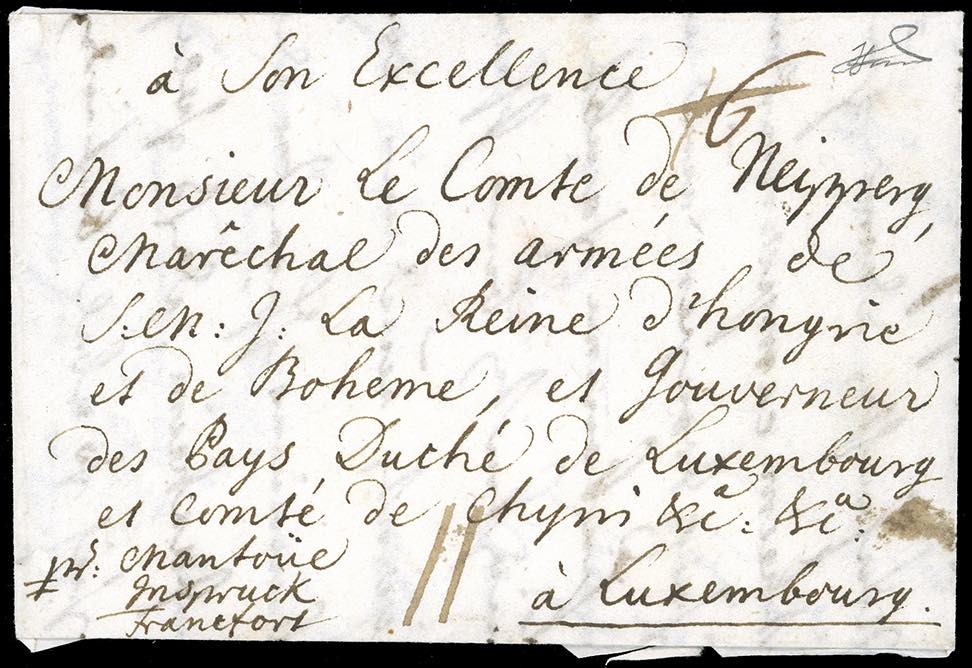 à Son Excellence
6
Monsieur Le Comte de Neipperg,
Marêchal des armées de
S: M: J: La Reine d'hongrie
et de Boheme, et Gouverneur
des Pays Duché de Luxembourg
et Comté de Chyni &c.a: &c.a:
pr: Mantoüe
Inspruck
Francfort
à Luxembourg.